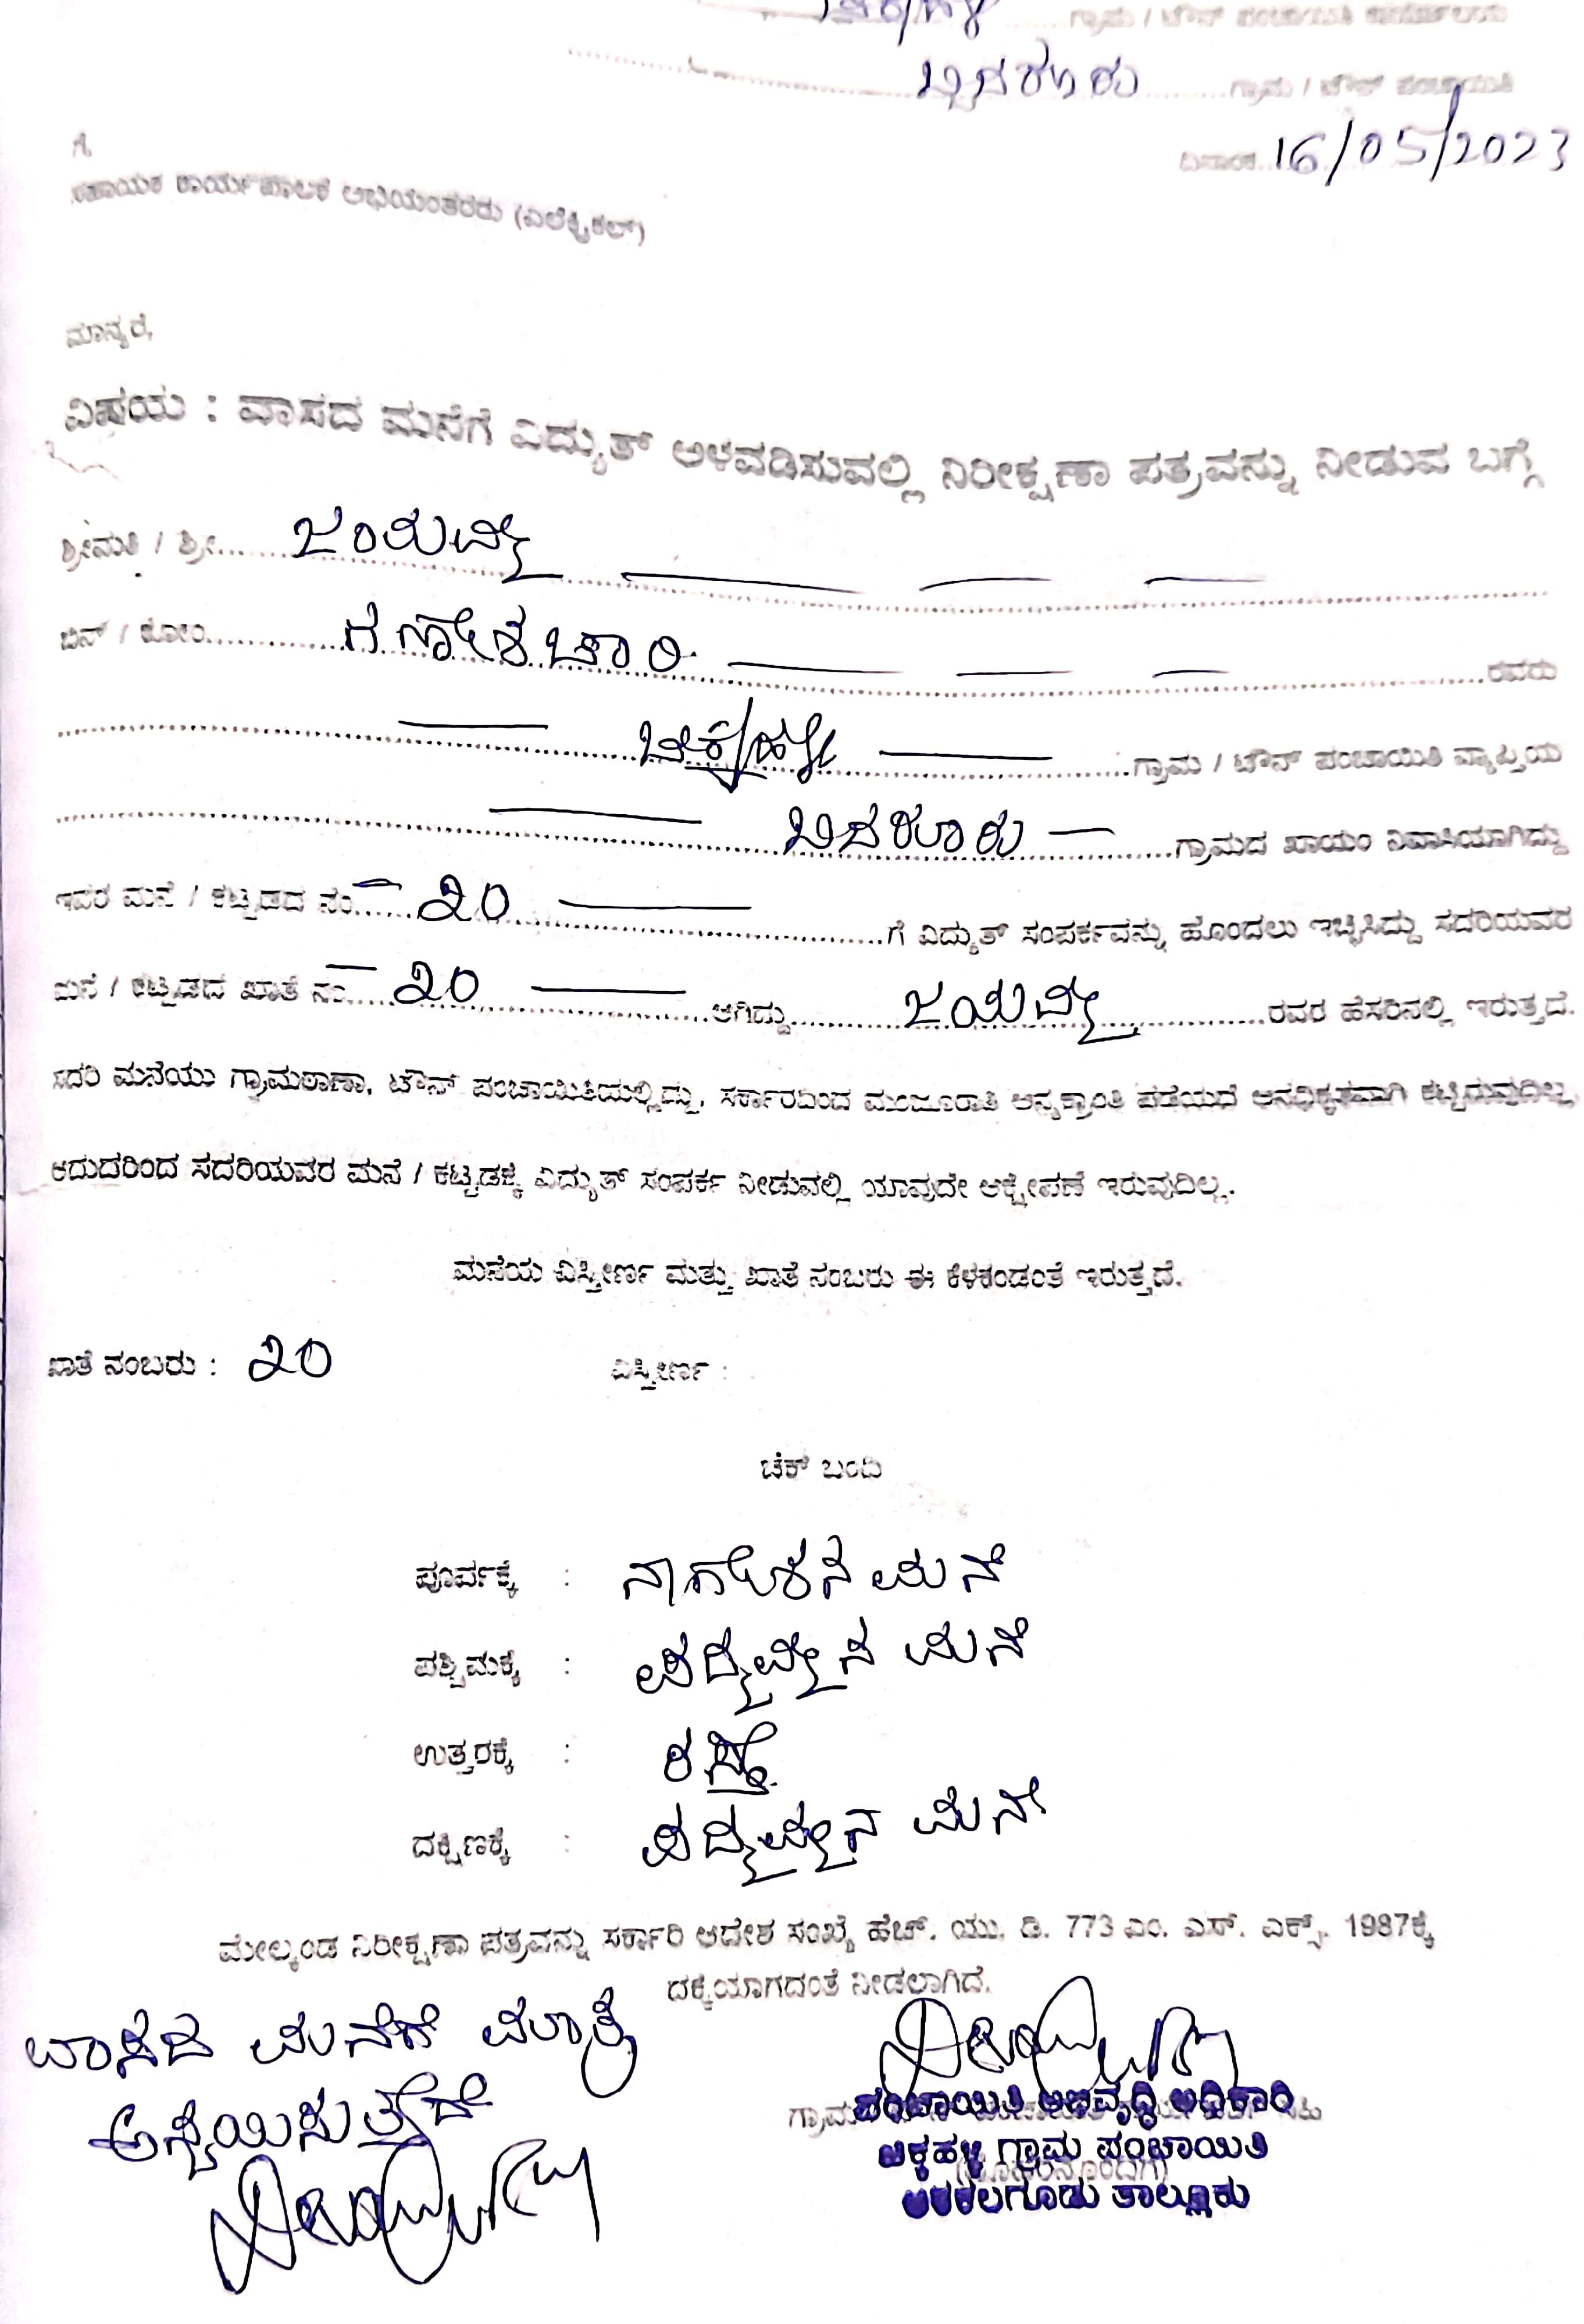 ಗ್ರಾಮ / ಟೌನ್ ಪಂಚಾಯಿತಿ ಕಾರ್ಯಾಲಯ
ಬಿದರೂರು ಗ್ರಾಮ / ಟೌನ್ ಪಂಚಾಯಿತಿ
ದಿನಾಂಕ 16/05/2023
ಗೆ,
ಸಹಾಯಕ ಕಾರ್ಯಪಾಲಕ ಅಭಿಯಂತರರು (ಎಲೆಕ್ಟ್ರಿಕಲ್)
ಮಾನ್ಯರೆ,
ವಿಷಯ : ವಾಸದ ಮನೆಗೆ ವಿದ್ಯುತ್ ಅಳವಡಿಸುವಲ್ಲಿ ನಿರೀಕ್ಷಣಾ ಪತ್ರವನ್ನು ನೀಡುವ ಬಗ್ಗೆ
ಶ್ರೀಮತಿ / ಶ್ರೀ ಜಯಮ್ಮ
ಬಿನ್ / ಕೋಂ ಗಣೇಶಚಾರಿ ರವರು
ಗ್ರಾಮ / ಟೌನ್ ಪಂಚಾಯಿತಿ ವ್ಯಾಪ್ತಿಯ
ಬಿದರೂರು ಗ್ರಾಮದ ಖಾಯಂ ನಿವಾಸಿಯಾಗಿದ್ದು
ಇವರ ಮನೆ / ಕಟ್ಟಡದ ನಂ 20 ಗೆ ವಿದ್ಯುತ್ ಸಂಪರ್ಕವನ್ನು ಹೊಂದಲು ಇಚ್ಛಿಸಿದ್ದು ಸದರಿಯವರ
ಮನೆ / ಕಟ್ಟಡದ ಖಾತೆ ನಂ 20 ಆಗಿದ್ದು ಜಯಮ್ಮ ರವರ ಹೆಸರಿನಲ್ಲಿ ಇರುತ್ತದೆ.
ಸದರಿ ಮನೆಯು ಗ್ರಾಮಠಾಣಾ, ಟೌನ್ ಪಂಚಾಯಿತಿಯಲ್ಲಿದ್ದು, ಸರ್ಕಾರದಿಂದ ಮಂಜೂರಾತಿ ಅನ್ಯಕ್ರಾಂತಿ ಪಡೆಯದೆ ಅನಧಿಕೃತವಾಗಿ ಕಟ್ಟಿರುವುದಿಲ್ಲ
ಆದುದರಿಂದ ಸದರಿಯವರ ಮನೆ / ಕಟ್ಟಡಕ್ಕೆ ವಿದ್ಯುತ್ ಸಂಪರ್ಕ ನೀಡುವಲ್ಲಿ ಯಾವುದೇ ಆಕ್ಷೇಪಣೆ ಇರುವುದಿಲ್ಲ.
ಮನೆಯ ವಿಸ್ತೀರ್ಣ ಮತ್ತು ಖಾತೆ ನಂಬರು ಈ ಕೆಳಕಂಡಂತೆ ಇರುತ್ತದೆ.
ಖಾತೆ ನಂಬರು : 20 ವಿಸ್ತೀರ್ಣ :
ಚೆಕ್ ಬಂದಿ
ಪೂರ್ವಕ್ಕೆ : ನಾಗೇಶನ ಮನೆ
ಪಶ್ಚಿಮಕ್ಕೆ : ಪದ್ಮಮ್ಮನ ಮನೆ
ಉತ್ತರಕ್ಕೆ : ರಸ್ತೆ
ದಕ್ಷಿಣಕ್ಕೆ : ಪದ್ಮಮ್ಮನ ಮನೆ
ಮೇಲ್ಕಂಡ ನಿರೀಕ್ಷಣಾ ಪತ್ರವನ್ನು ಸರ್ಕಾರಿ ಆದೇಶ ಸಂಖ್ಯೆ ಹೆಚ್. ಯು. ಡಿ. 773 ಎಂ. ಎಸ್. ಎಕ್ಸ್. 1987ಕ್ಕೆ
ದಕ್ಕೆಯಾಗದಂತೆ ನೀಡಲಾಗಿದೆ.
ವಾಸದ ಮನೆಗೆ ಮಾತ್ರ
ಅನ್ವಯಿಸುತ್ತದೆ
ಪಂಚಾಯಿತಿ ಅಭಿವೃದ್ಧಿ ಅಧಿಕಾರಿ
ಚಿಕ್ಕಹಳ್ಳಿ ಗ್ರಾಮ ಪಂಚಾಯಿತಿ
ಅರಕಲಗೂಡು ತಾಲ್ಲೂಕು